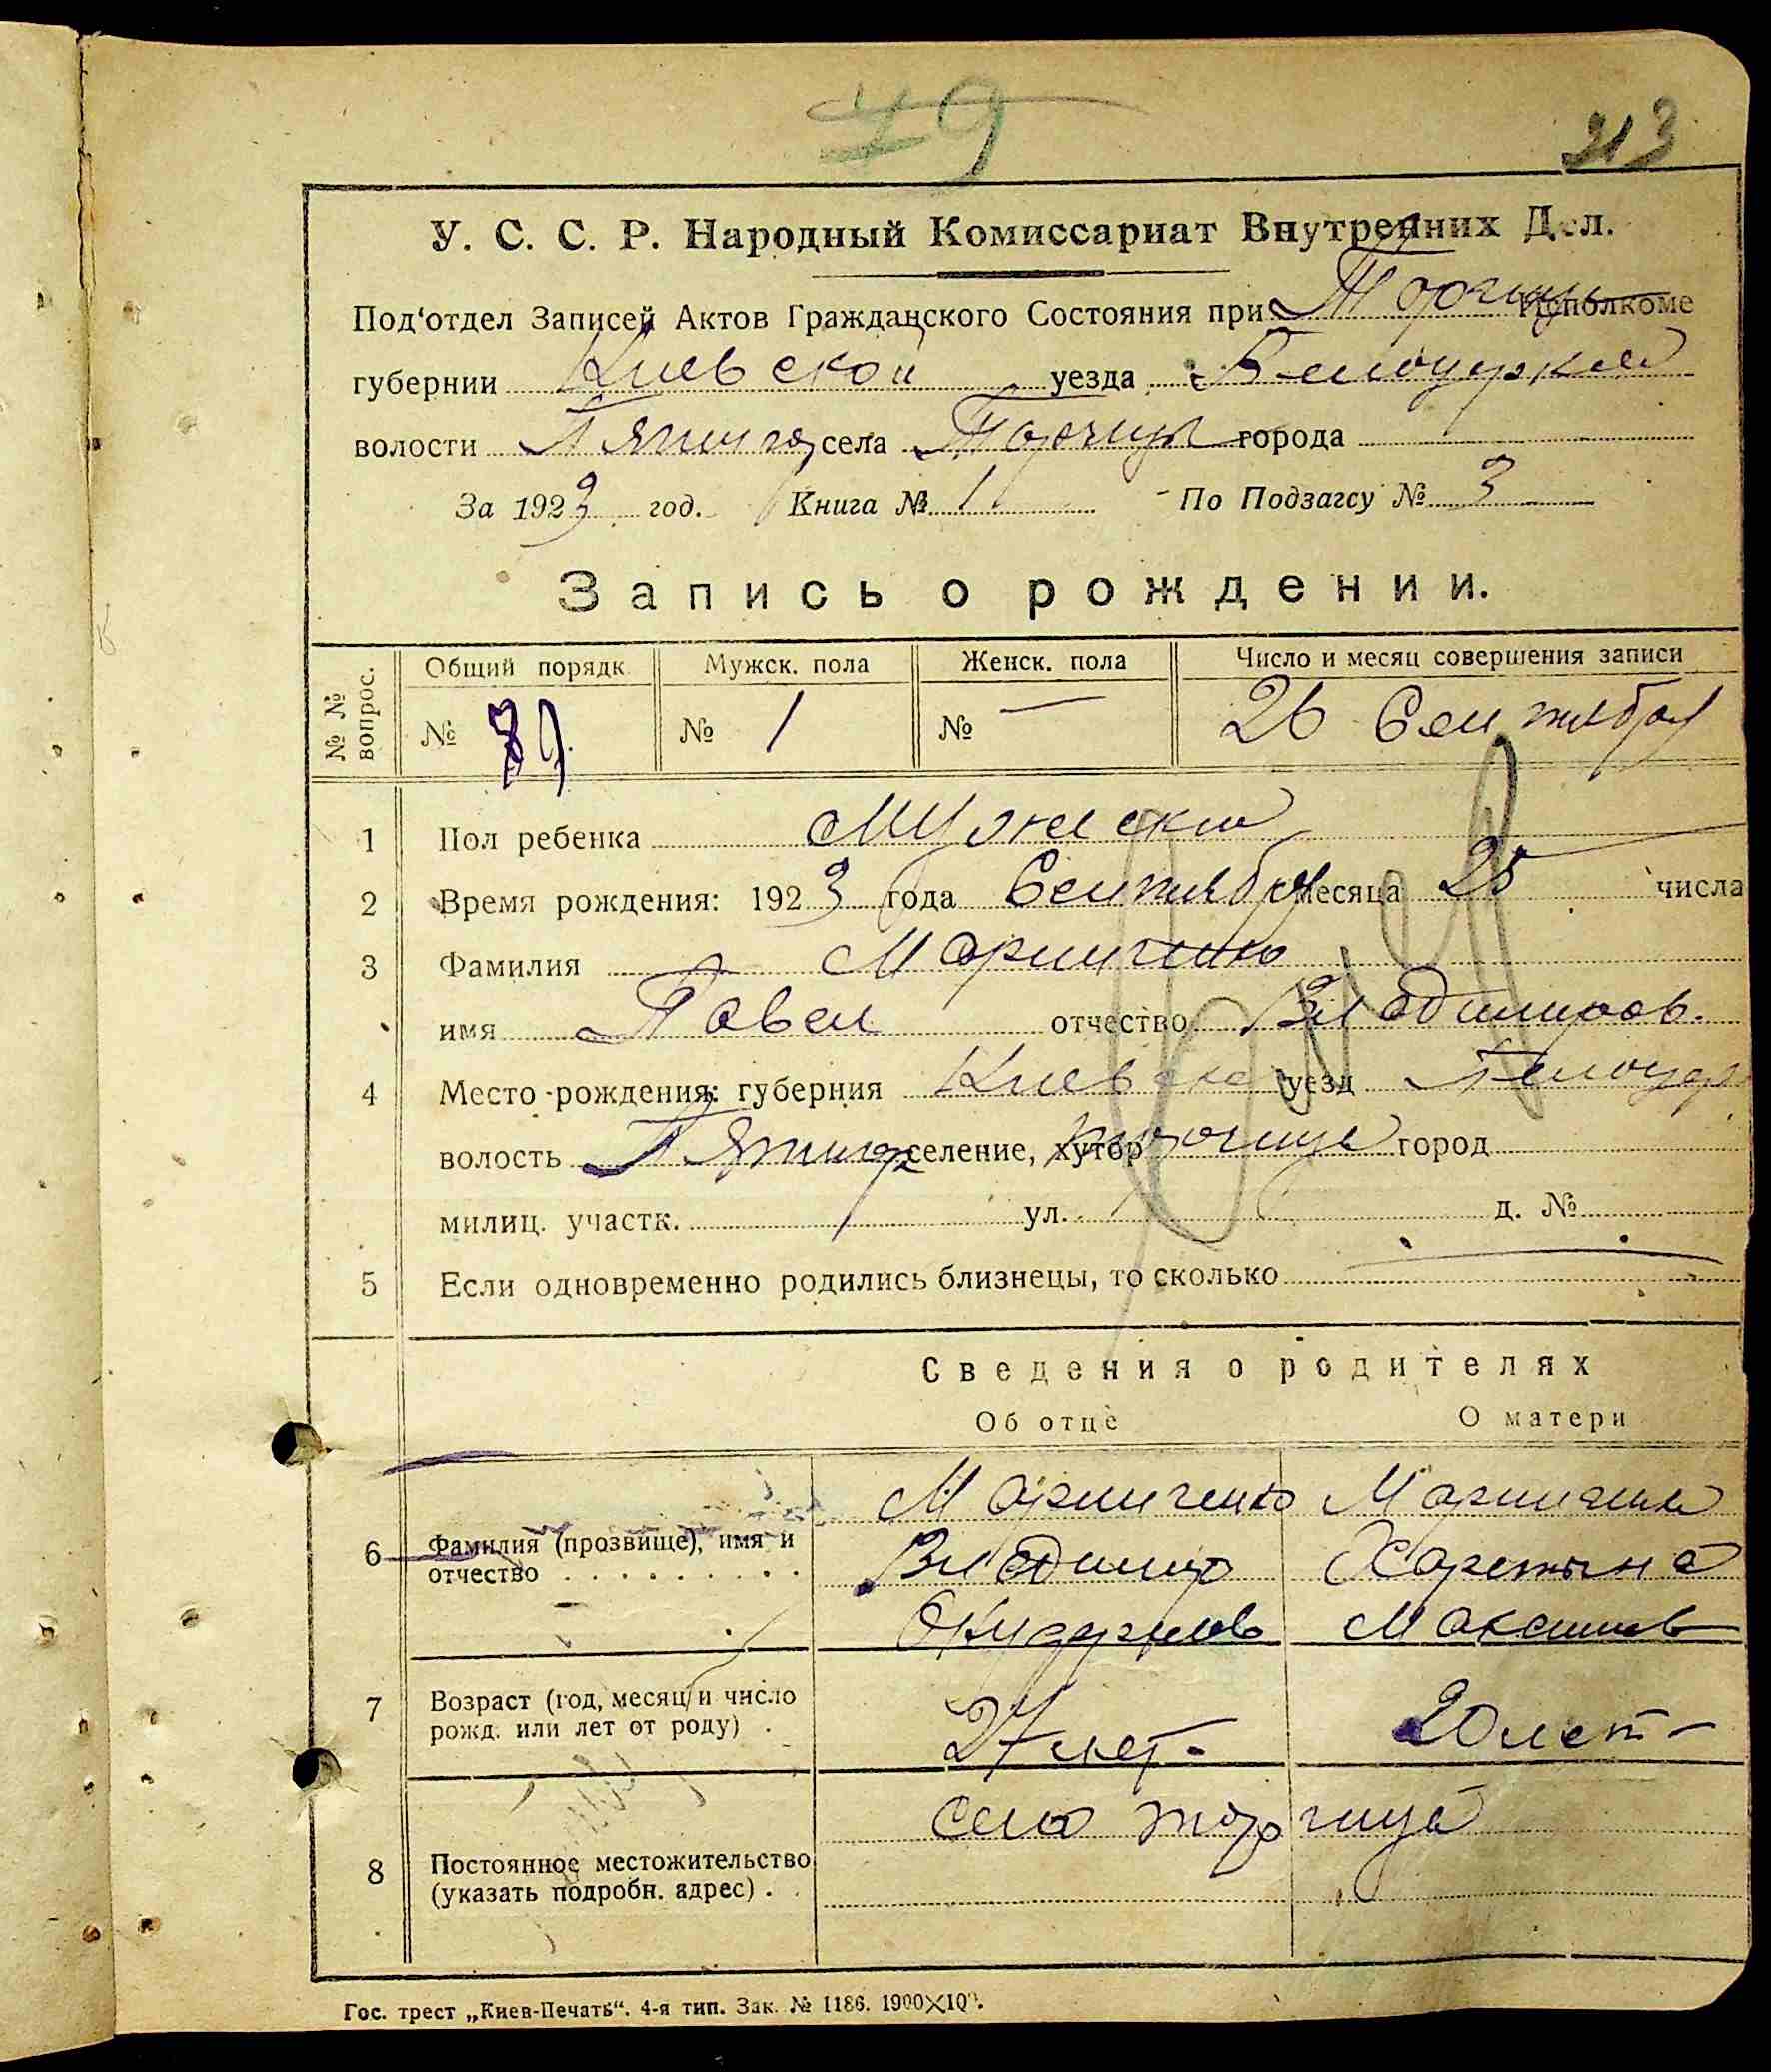 79
313
У. С. С. Р. Народный Комиссариат Внутренних Дел.
Под'отдел Записей Актов Гражданского Состояния при Торчиц Исполкоме
губернии Киевской уезда Белоцеркв
волости Пятигор села Торчица города
За 1923 год. Книга № 1 По Подзагсу № 3
Запись о рождении.
№ № вопрос.
Общий порядк. Мужск. пола Женск. пола Число и месяц совершения записи
№ 79. № 1 № — 26 Сентября
1 Пол ребенка Мужеский
2 Время рождения: 1923 года Сентября месяца 25 числа
3 Фамилия Маринченко
имя Павел отчество Владимиров.
4 Место рождения: губерния Киевская уезд Белоцер
волость Пятигор селение, хутор Торчица город
милиц. участк. ул. д. №
5 Если одновременно родились близнецы, то сколько
Сведения о родителях
Об отце О матери
6 Фамилия (прозвище), имя и отчество
Маринченко Маринченко
Владимир Харетына
Максимов
7 Возраст (год, месяц и число рожд. или лет от роду) .
27 лет- 20 лет-
село торчица
8 Постоянное местожительство
(указать подробн. адрес) .
Гос. трест „Киев-Печать“. 4-я тип. Зак. № 1186. 1900×100.